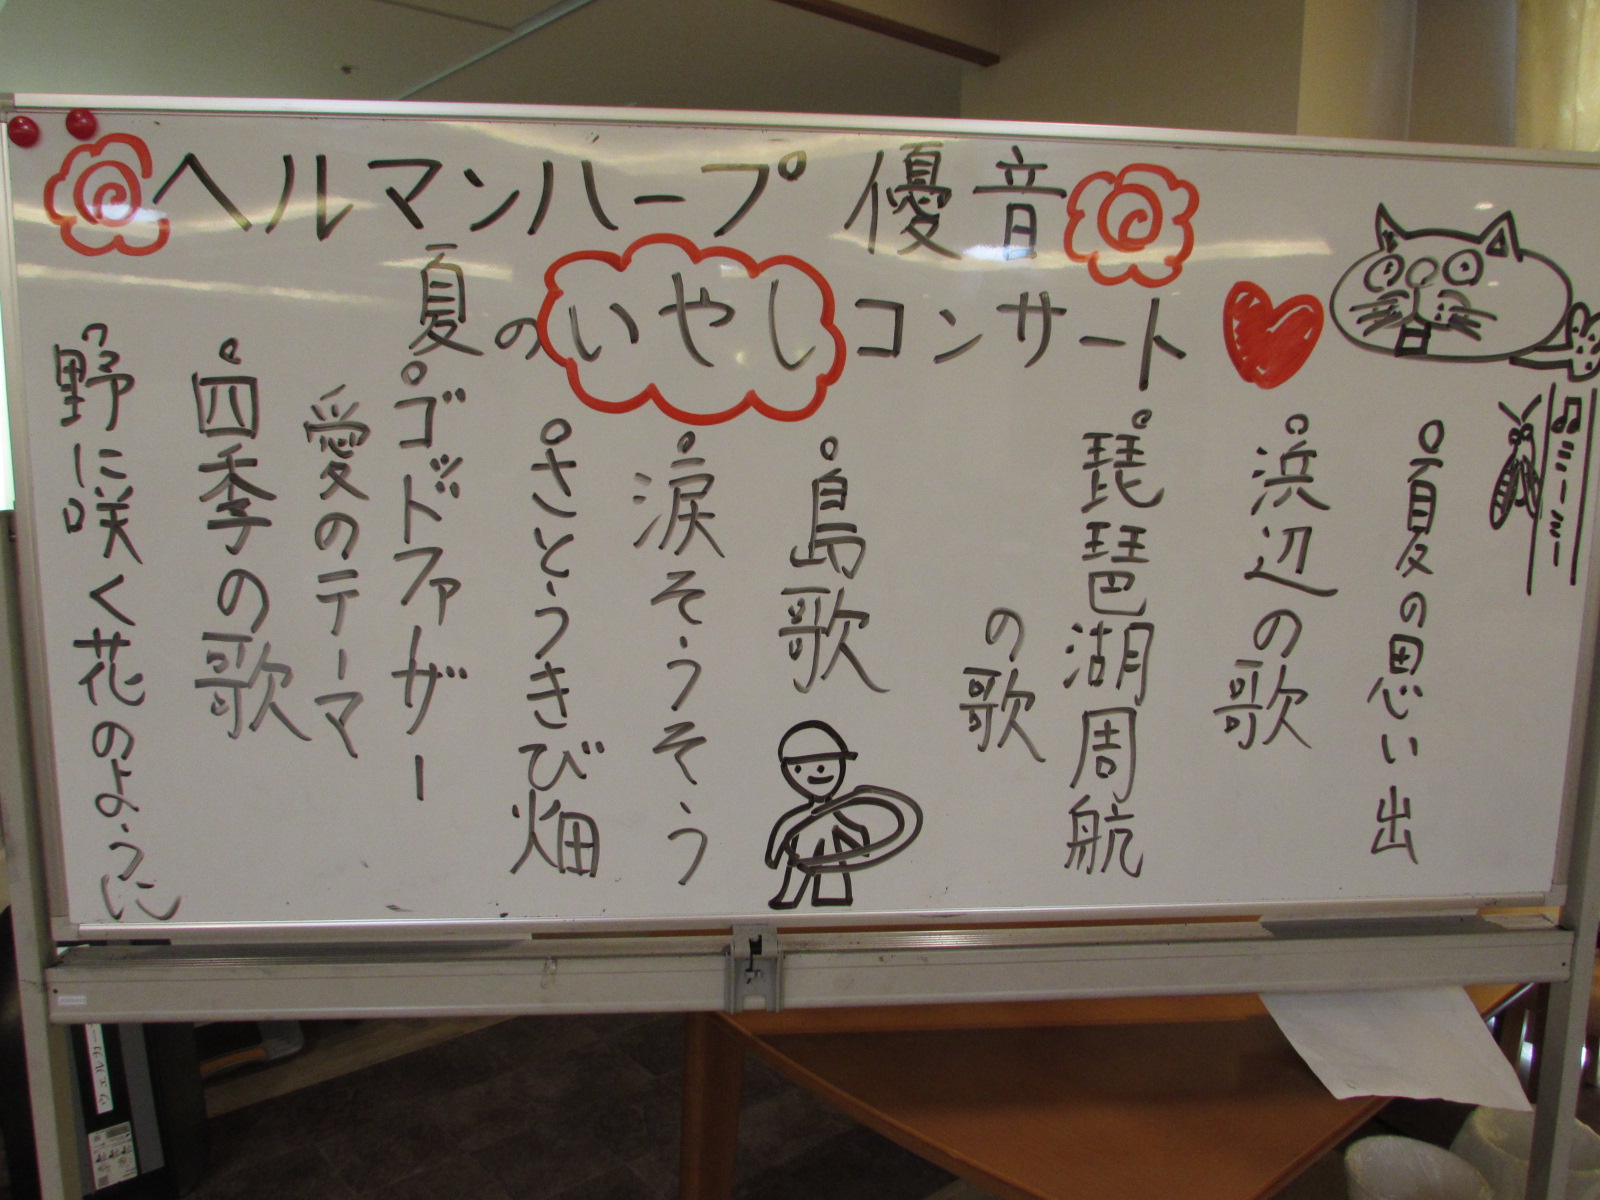 ヘルマンハープ 優音
夏のいやしコンサート
夏の思い出
浜辺の歌
琵琶湖周航
の歌
島歌
涙そうそう
さとうきび畑
ゴッドファザー
愛のテーマ
四季の歌
野に咲く花のように
ミーンミーン
ウェルカー